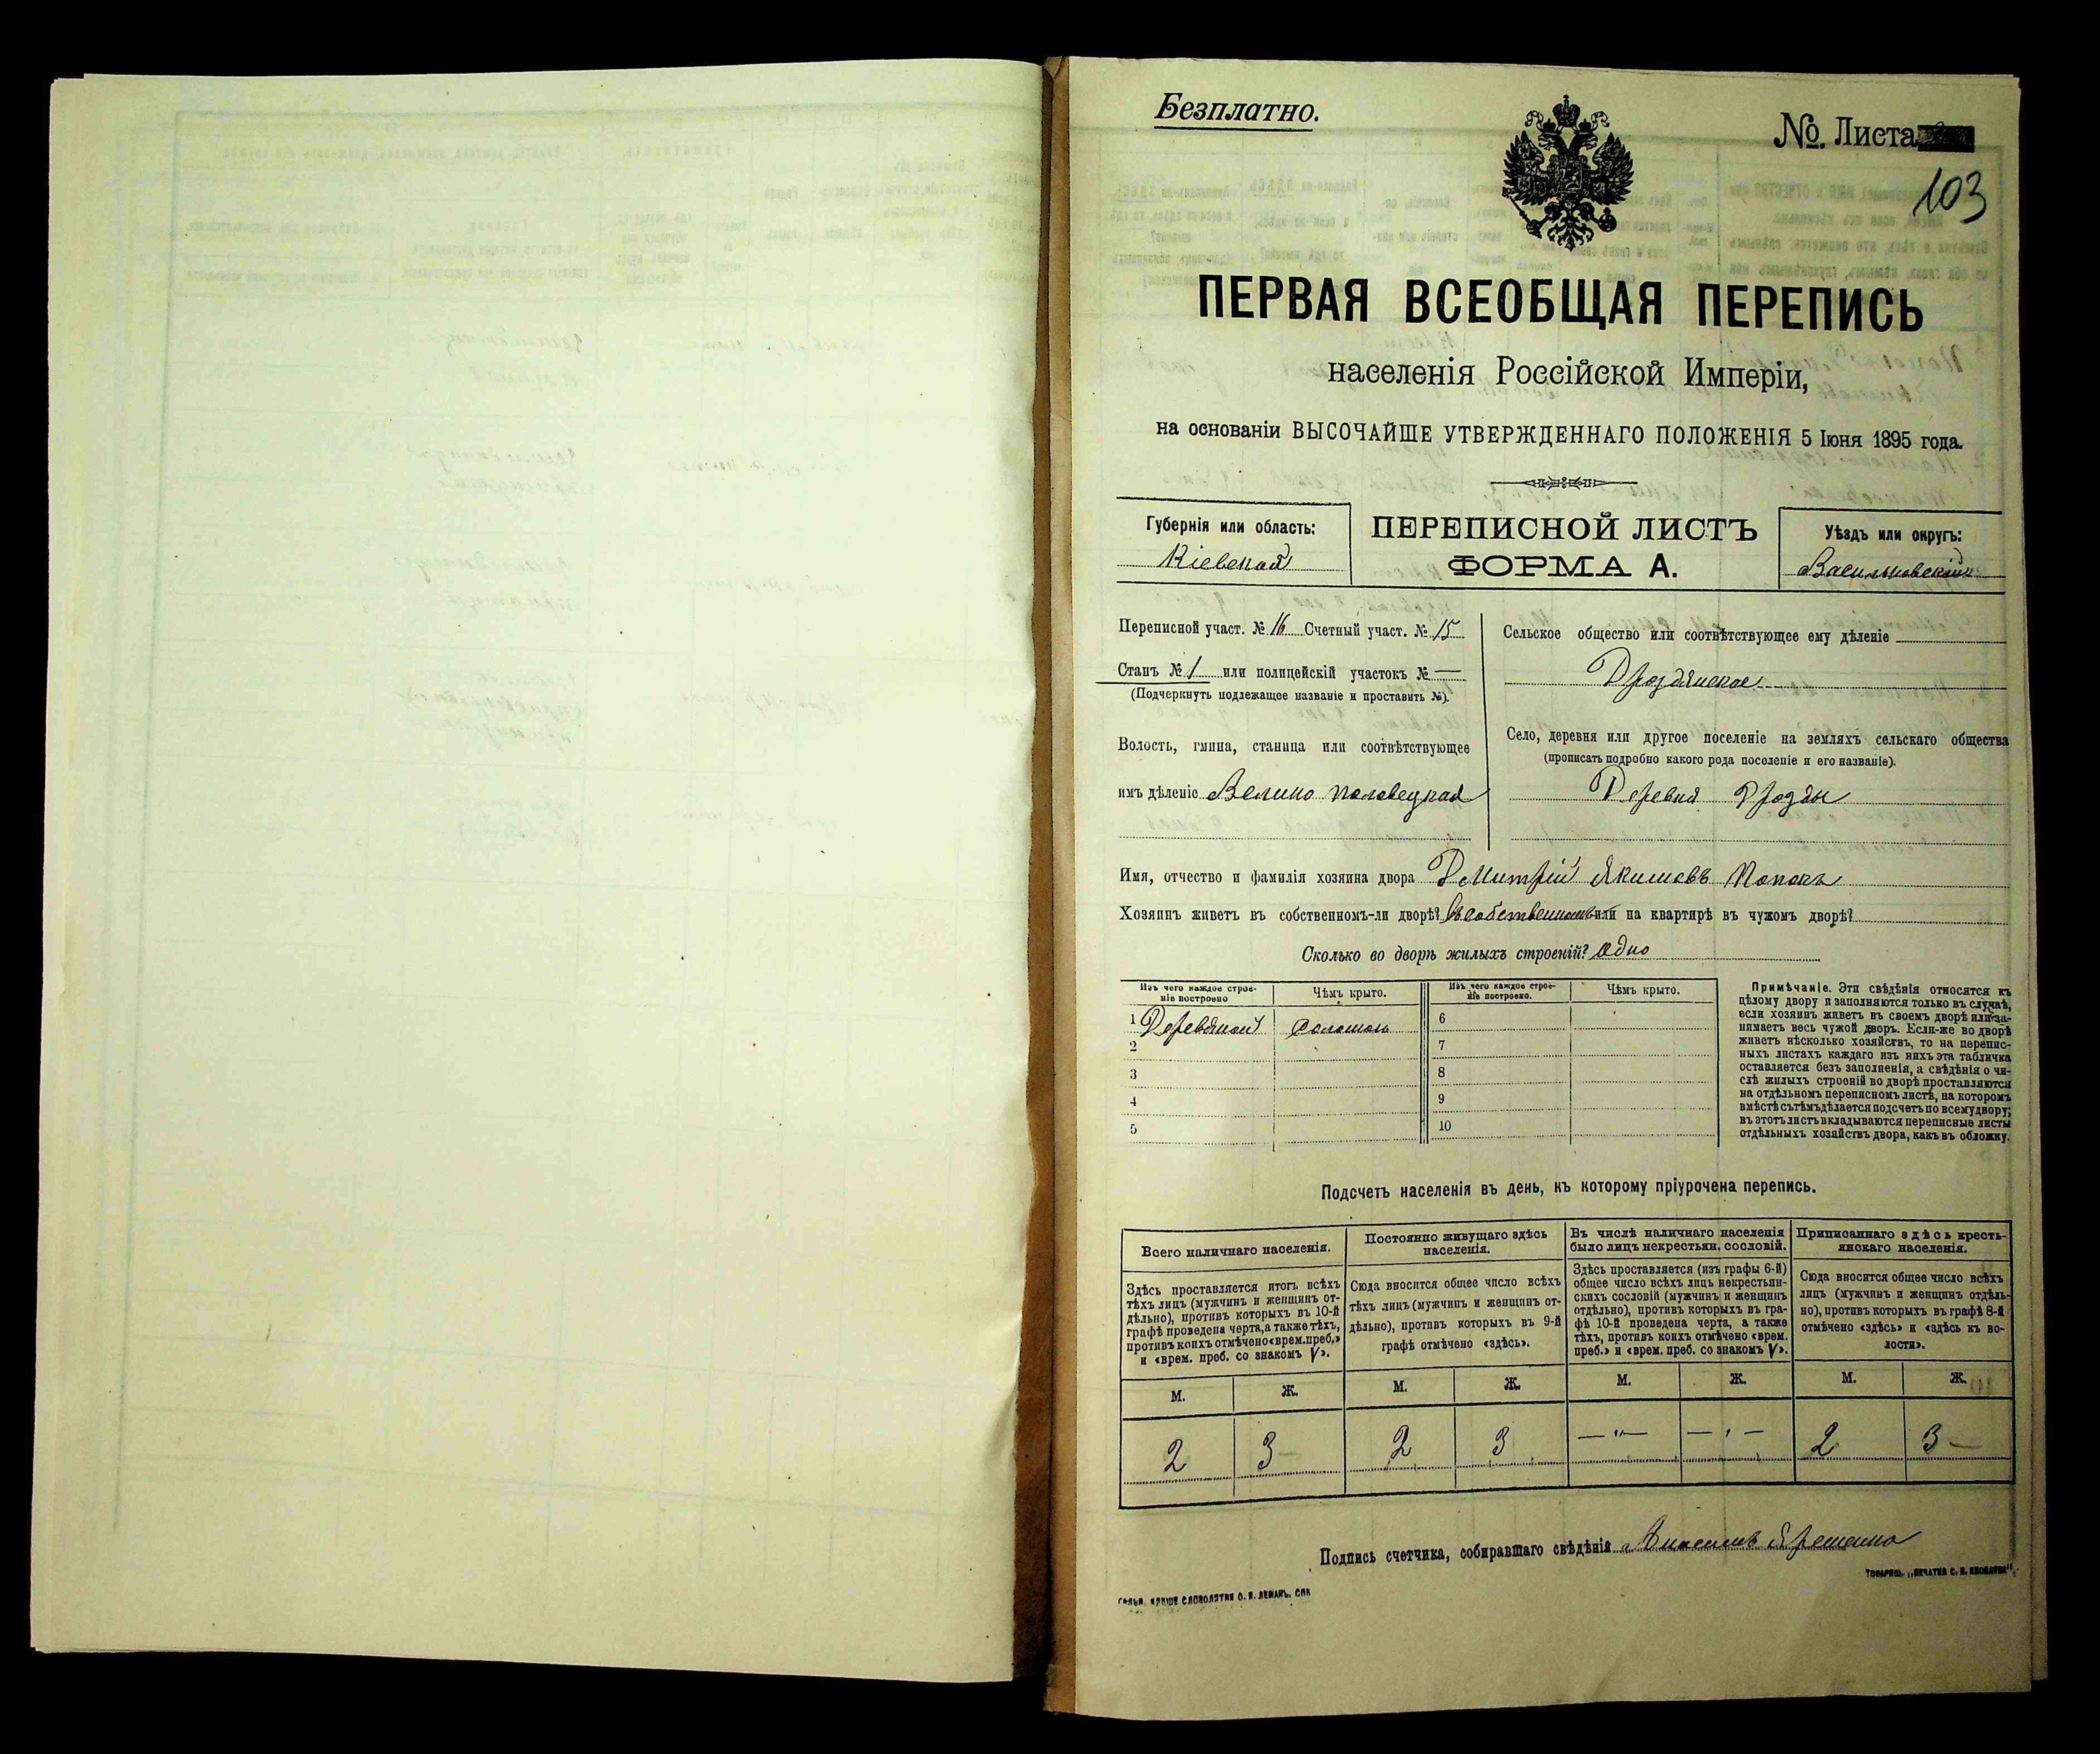 Безплатно.
№. Листа
103
ПЕРВАЯ ВСЕОБЩАЯ ПЕРЕПИСЬ
населенія Россійской Имперіи,
на основаніи ВЫСОЧАЙШЕ УТВЕРЖДЕННАГО ПОЛОЖЕНІЯ 5 Іюня 1895 года.
Губернія или область:
Кіевская
ПЕРЕПИСНОЙ ЛИСТЪ
ФОРМА А.
Уѣздъ или округъ:
Васильковскій
Переписной участ. № 16 Счетный участ. № 15
Станъ № 1 или полицейскій участокъ № —
(Подчеркнуть подлежащее названіе и проставить №).
Волость, гмина, станица или соотвѣтствующее
имъ дѣленіе Велико половецкая
Сельское общество или соотвѣтствующее ему дѣленіе
Дроздянское
Село, деревня или другое поселеніе на земляхъ сельскаго общества
(прописать подробно какого рода поселеніе и его названіе).
Деревня Дрозды
Имя, отчество и фамилія хозяина двора Дмитрій Якимовъ
Хозяинъ живетъ въ собственномъ-ли дворѣ? Въ собственномъ или на квартирѣ въ чужомъ дворѣ?
Сколько во дворѣ жилыхъ строеній? Одно
Изъ чего каждое строе-
ніе построено
Чѣмъ крыто.
Изъ чего каждое строе-
ніе построено.
Чѣмъ крыто.
1 Деревяной Соломою
2
3
4
5
6
7
8
9
10
Примѣчаніе. Эти свѣдѣнія относятся къ
цѣлому двору и заполняются только въ случаѣ,
если хозяинъ живетъ въ своемъ дворѣ или за-
нимаетъ весь чужой дворъ. Если-же во дворѣ
живетъ нѣсколько хозяйствъ, то на перепис-
ныхъ листахъ каждаго изъ нихъ эта табличка
оставляется безъ заполненія, а свѣдѣнія о чи-
слѣ жилыхъ строеній во дворѣ проставляются
на отдѣльномъ переписномъ листѣ, на которомъ
вмѣстѣ съ тѣмъ дѣлается подсчетъ по всему двору;
въ этотъ листъ вкладываются переписные листы
отдѣльныхъ хозяйствъ двора, какъ въ обложку.
Подсчетъ населенія въ день, къ которому пріурочена перепись.
Всего наличнаго населенія.
Постоянно живущаго здѣсь
населенія.
Въ числѣ наличнаго населенія
было лицъ некрестьян. сословій.
Приписаннаго здѣсь кресть-
янскаго населенія.
Здѣсь проставляется итогъ всѣхъ
тѣхъ лицъ (мужчинъ и женщинъ от-
дѣльно), противъ которыхъ въ 10-й
графѣ проведена черта, а также тѣхъ,
противъ коихъ отмѣчено «врем. преб.»
и «врем. преб. со знакомъ V».
Сюда вносится общее число всѣхъ
тѣхъ лицъ (мужчинъ и женщинъ от-
дѣльно), противъ которыхъ въ 9-й
графѣ отмѣчено «здѣсь».
Здѣсь проставляется (изъ графы 6-й)
общее число всѣхъ лицъ некрестьян-
скихъ сословій (мужчинъ и женщинъ
отдѣльно), противъ которыхъ въ гра-
фѣ 10-й проведена черта, а также
тѣхъ, противъ коихъ отмѣчено «врем.
преб.» и «врем. преб. со знакомъ V».
Сюда вносится общее число всѣхъ
лицъ (мужчинъ и женщинъ отдѣль-
но), противъ которыхъ въ графѣ 8-й
отмѣчено «здѣсь» и «здѣсь къ во-
лости».
М. Ж. М. Ж. М. Ж. М. Ж.
2 3 2 3 —"— —"— 2 3
Подпись счетчика, собиравшаго свѣдѣнія